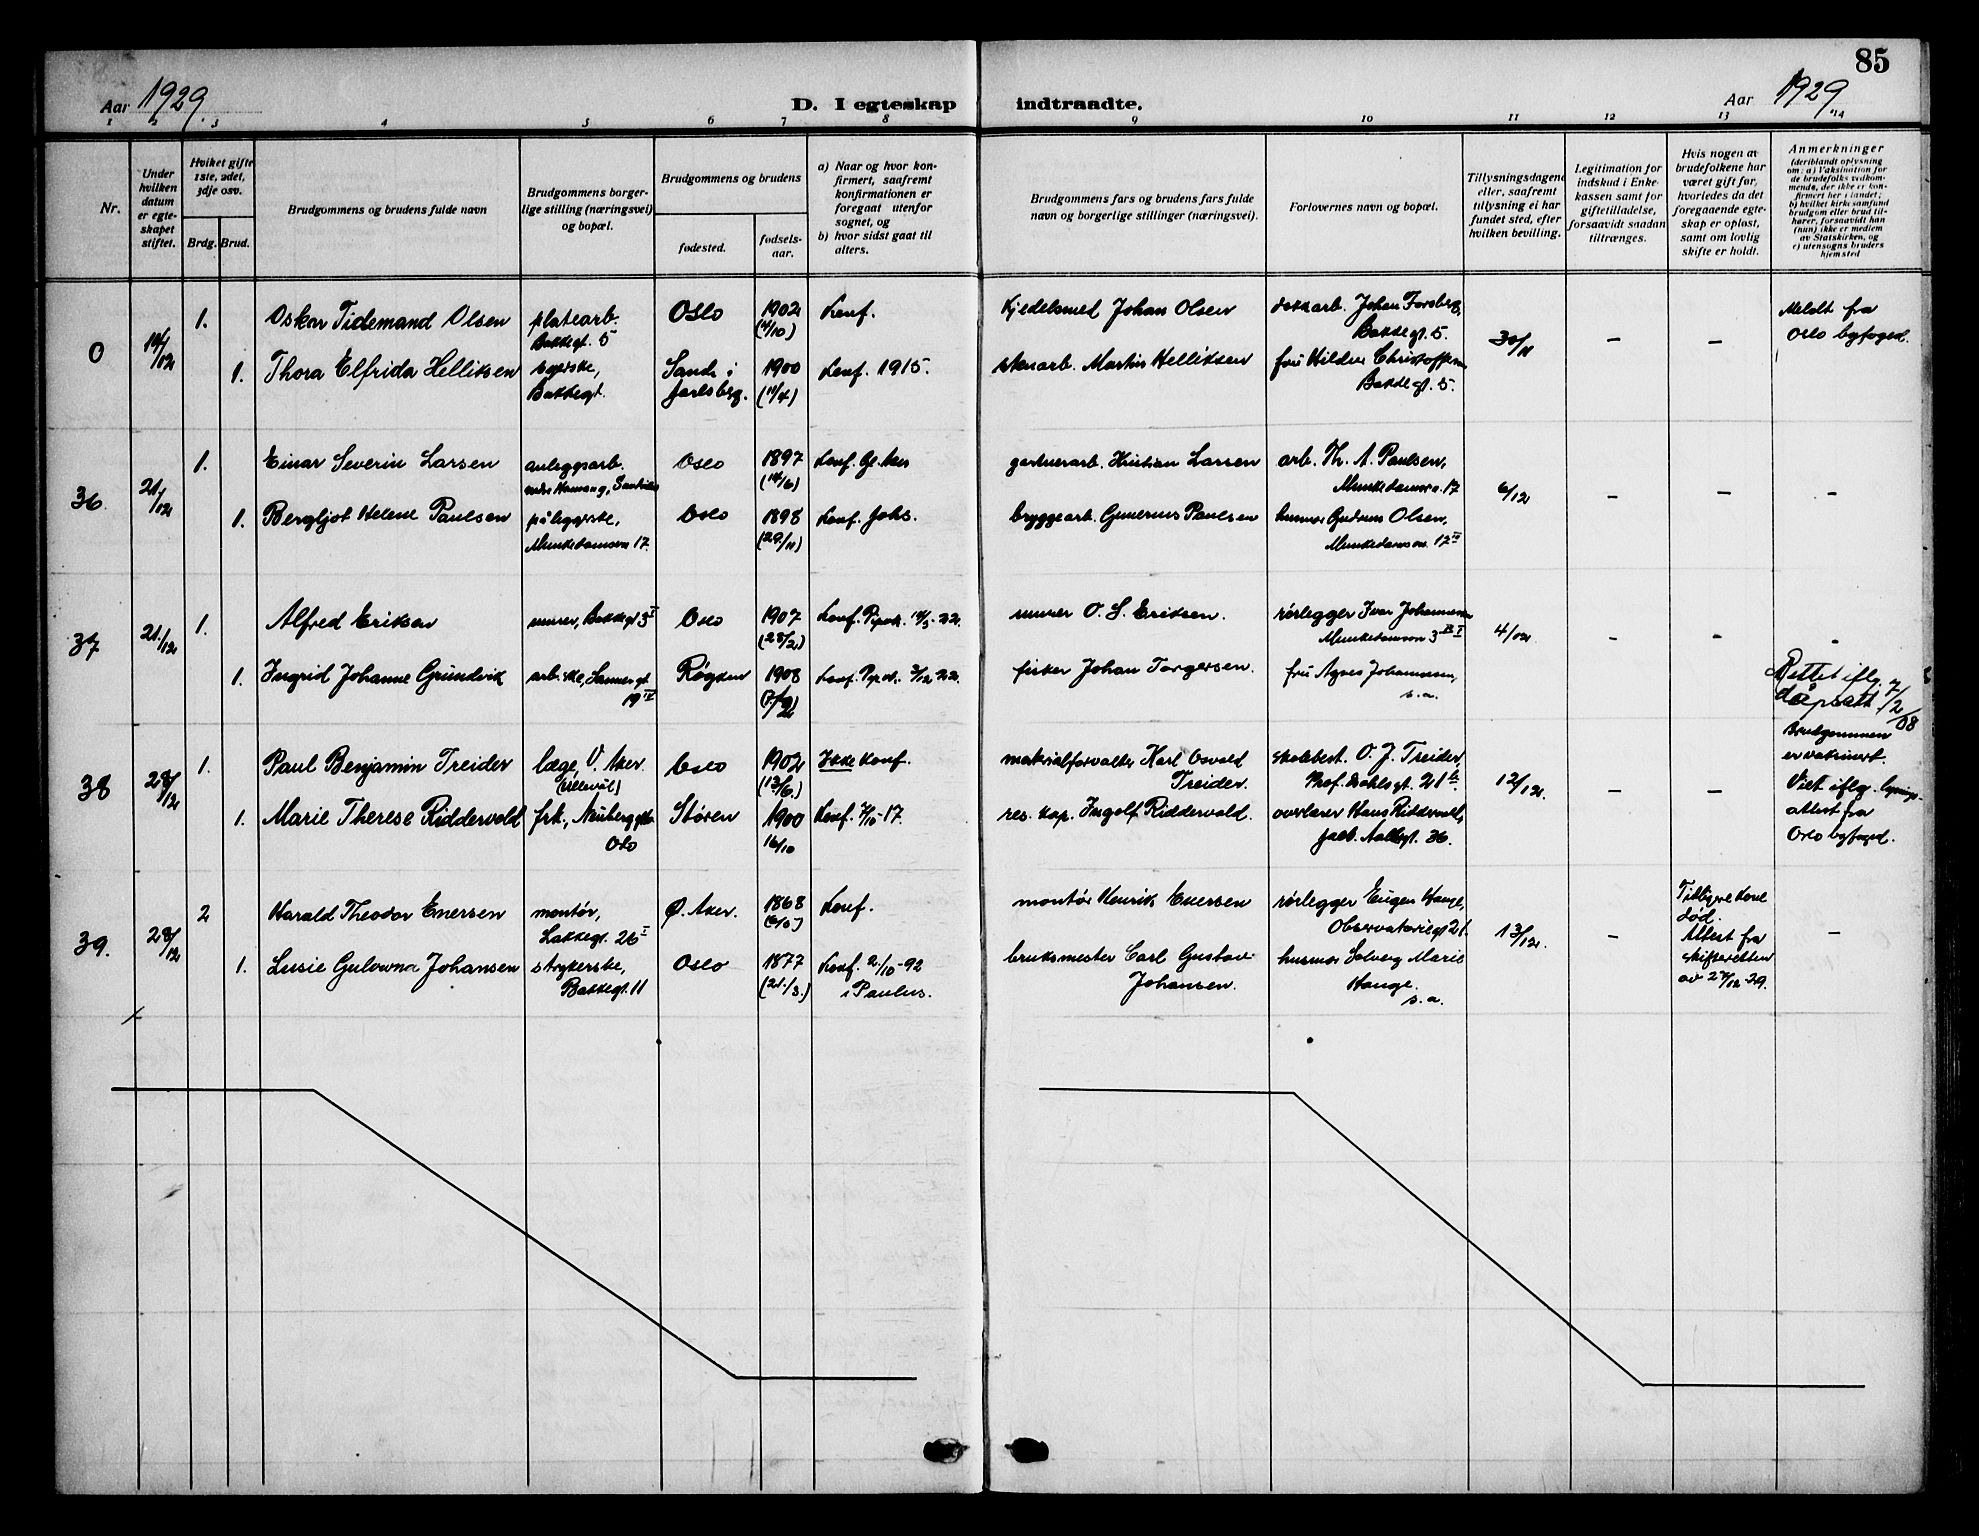 85
Aar 1929.
D. I egteskap indtraadte.
Aar 1929
1 2 3 4 5 6 7 8 9 10 11 12 13 14
Nr.
Under
hvilken
datum
er egte-
skapet
stiftet.
Hvilket gifte
1ste, 2det,
3dje osv.
Brdg. Brud.
Brudgommens og brudens fulde navn
Brudgommens borger-
lige stilling (næringsvei)
og bopæl.
Brudgommens og brudens
fødested.
fødsels-
aar.
a) Naar og hvor kon-
firmert, saafremt
konfirmationen er
foregaat utenfor
sognet, og
b) hvor sidst gaat til
alters.
Brudgommens fars og brudens fars fulde
navn og borgerlige stillinger (næringsvei).
Forlovernes navn og bopæl.
Tillysningsdagene
eller, saafremt
tillysning ei har
fundet sted, efter
hvilken bevilling.
Legitimation for
indskud i Enke-
kassen samt for
giftetilladelse,
forsaavidt saadan
tiltrænges.
Hvis nogen av
brudefolkene har
været gift før,
hvorledes da det
foregaaende egte-
skap er opløst,
samt om lovlig
skifte er holdt.
Anmerkninger
(deriblandt oplysning
om: a) Vaksination for
de brudefolks vedkom-
mende, der ikke er kon-
firmert her i landet;
b) hvilket kirkesamfund
brudgom eller brud til-
hører, forsaavidt han
(hun) ikke er medlem
av Statskirken, og
c) utensogns bruders
hjemsted
0 14/12 1. Oskar Tidemand Olsen platearb. Bakkegt. 5 Oslo 1902 (11/10) Konf. Kjedelsmed Johan Olsen dokkarb. Johan Forsberg, Bakkegt. 5. 30/11 – – Meldt fra Oslo byfoged.
1. Thora Elfrida Helliksen syerske, Bakkegt. Sande i Jarlsberg. 1900 (11/4) Konf. 1915. stenarb. Martin Helliksen fru Hilda Christoffersen Bakkegt. 5.
36 21/12 1. Einar Severin Larsen anleggsarb. Oslo 1897 (14/6) Konf. Gl. Aker gartnerarb. Kristian Larsen arb. Th. A. Paulsen, Munkedamsvn. 17 6/12 – – –
1. Bergljot Helene Paulsen påleggerske, Munkedamsvn 17. Oslo 1898 (29/11) Konf. Johs. bryggearb. Gunerius Paulsen husmor Gudrun Olsen, Munkedamsvn. 12 IV
37 21/12 1. Alfred Eriksen murer, Bakkegt 3 I Oslo 1907 (28/2) Konf. murer O. S. Eriksen. rørlegger Ivar Johannessen Munkedamsvn 3 4/12. – – –
1. Ingrid Johanne Grundvik arb.ske, Sannergt 19 IV Røyken 1908 7/2 Konf. fisker Johan Torgersen. fru Agnes Johannessen, s.a. Rettet iflg. dåpsatt. 7/2 08
38 28/12 1. Paul Benjamin Treider læge, V. Aker (Ullevål) Oslo 1902 (13/6.) Ikke konf. materialforvalter Karl Osvald Treider. skolebest. O. J. Treider, Prof. Dahlsgt. 21 b. 12/12. – – Brudgommen er vaksinert. Viet iflg. lysnings- attest fra Oslo byfoged.
1. Marie Therese Riddervold frk., Neuberggt. Oslo Støren 1900 16/10 Konf. 7/10-17. res. kap. Ingolf Riddervold. overlærer Hans Riddervold, Jacob Aallsgt. 36.
39. 28/12 2 Harald Theodor Enersen montør, Lakkegt. 26 I Ø. Aker. 1868 Konf. montør Henrik Enersen rørlegger Eugen Hauge, Observatoriegt 21. 13/12. – Tidligere kone død. Attest fra skifteretten av 27/12-29. –
1. Lusie Gulowna Johansen strykerske, Bakkegt. 11 Oslo 1877 (21/3.) Konf. 2/10-92 i Paulus. bruksmester Carl Gustav Johansen. husmor Solveig Marie Hauge. s.a.